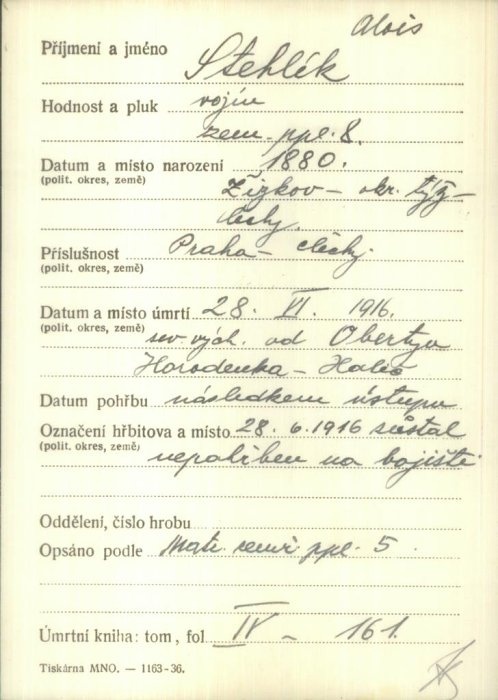 Alois
Příjmení a jméno Stehlík
Hodnost a pluk vojín
zem. ppl. 8.
Datum a místo narození 1880.
(polit. okres, země) Žižkov - okr. týž -
čechy.
Příslušnost Praha - čechy.
(polit. okres, země)
Datum a místo úmrtí 28. VI. 1916.
(polit. okres, země) sev. vých. od Obertyn
Horodenka - Halič
Datum pohřbu následkem ústupu
Označení hřbitova a místo 28. 6. 1916 zůstal
(polit. okres, země) nepohřben na bojišti
Oddělení, číslo hrobu
Opsáno podle Matr. zemř. ppl. 5.
Úmrtní kniha: tom, fol IV - 161.
Tiskárna MNO. — 1163-36.